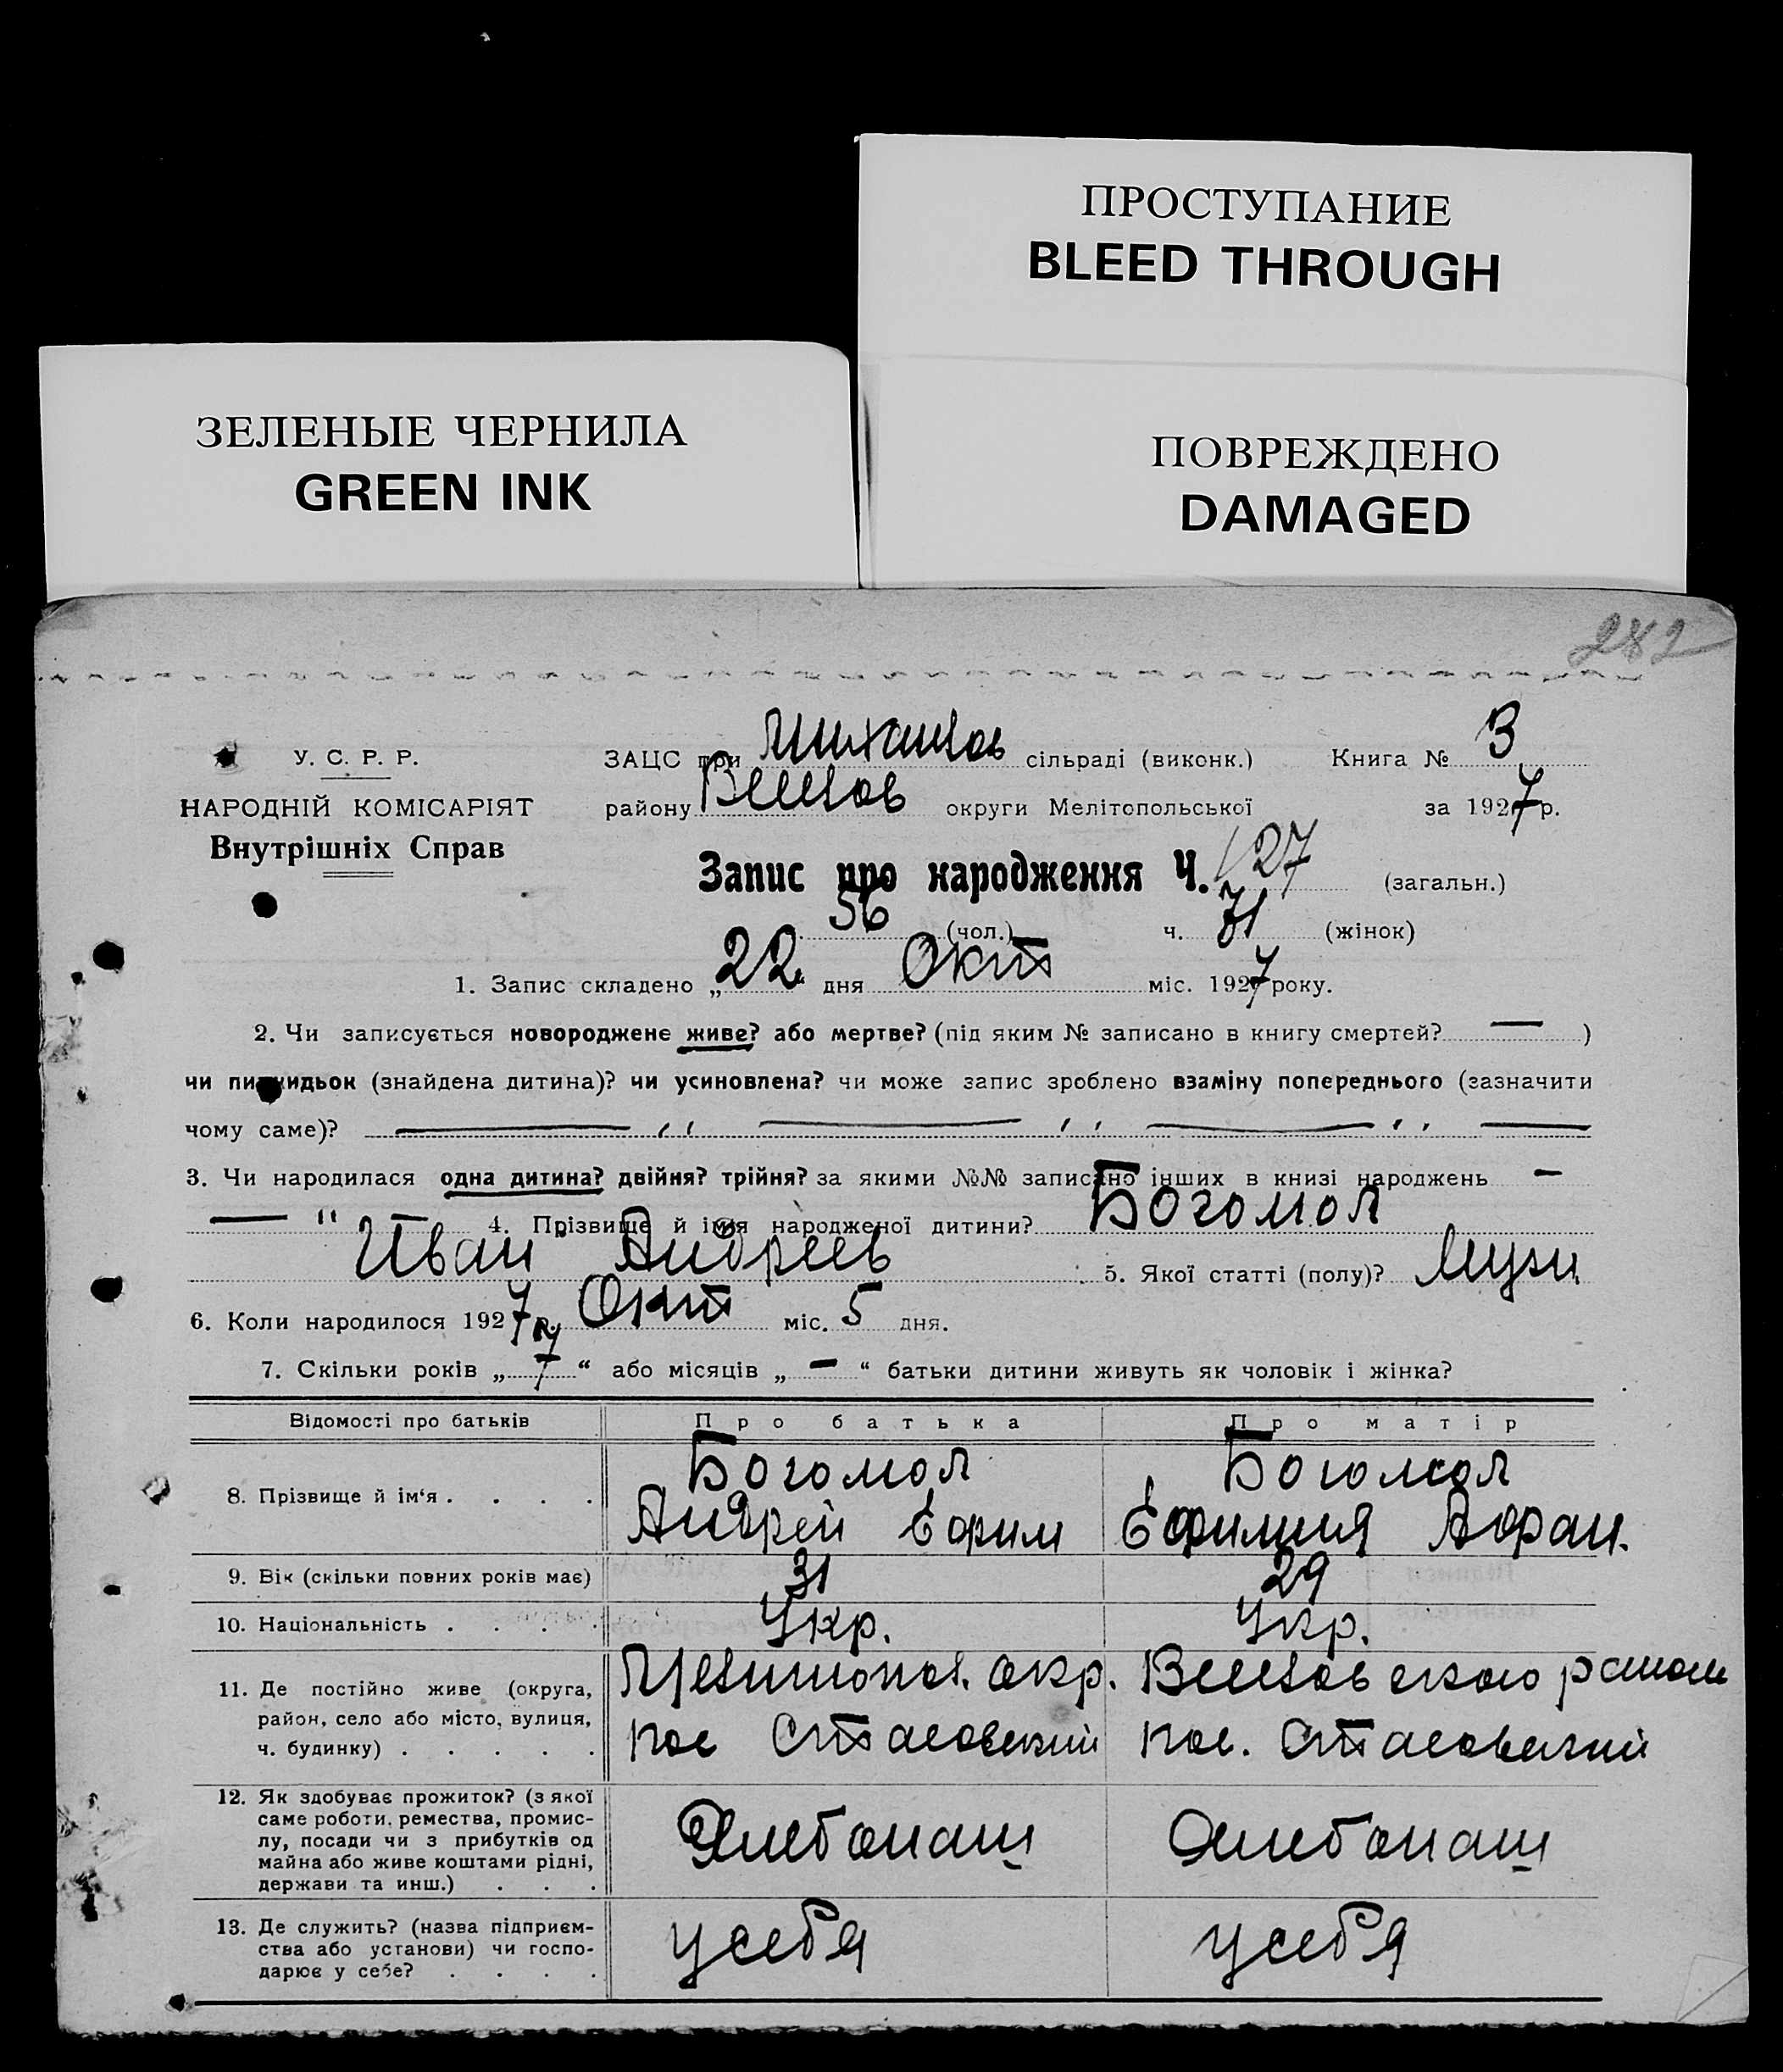 ПРОСТУПАНИЕ
BLEED THROUGH
ЗЕЛЕНЫЕ ЧЕРНИЛА
GREEN INK
ПОВРЕЖДЕНО
DAMAGED
282
У. С. Р. Р.
НАРОДНІЙ КОМІСАРІЯТ
Внутрішніх Справ
ЗАЦС при Михайлов сільраді (виконк.) Книга № 3
району Веселов округи Мелітопольської за 1927 р.
Запис про народження Ч. 127 (загальн.)
56 (чол.) ч. 71 (жінок)
1. Запис складено „22“ дня Окт міс. 1927 року.
2. Чи записується новороджене живе? або мертве? (під яким № записано в книгу смертей? — )
чи пидкидьок (знайдена дитина)? чи усиновлена? чи може запис зроблено взаміну попереднього (зазначити
чому саме)? — „ — „ — „ —
3. Чи народилася одна дитина? двійня? трійня? за якими №№ записано інших в книзі народжень —
— " — 4. Прізвище й імя народженої дитини? Богомол
Иван Андреев 5. Якої статті (полу)? Мужч.
6. Коли народилося 1927 р. Окт міс. 5 дня.
7. Скільки років „ 7 “ або місяців „ — “ батьки дитини живуть як чоловік і жінка?
Відомості про батьків Про батька Про матір
8. Прізвище й ім‘я . . . . Богомол Богомол
Андрей Ефим Ефимия Афан.
9. Вік (скільки повних років має) 31 29
10. Національність . . . . Укр. Укр.
11. Де постійно живе (округа, Мелитопол. окр. Веселовского района
район, село або місто, вулиця,
ч. будинку) . . . . . пос Стасовский пос. Стасовский
12. Як здобуває прожиток? (з якої
саме роботи, ремества, промис-
лу, посади чи з прибутків од Хлебопаш Хлебопаш
майна або живе коштами рідні,
держави та инш.) . . .
13. Де служить? (назва підприєм-
ства або установи) чи госпо- у себя у себя
дарює у себе? . . . .